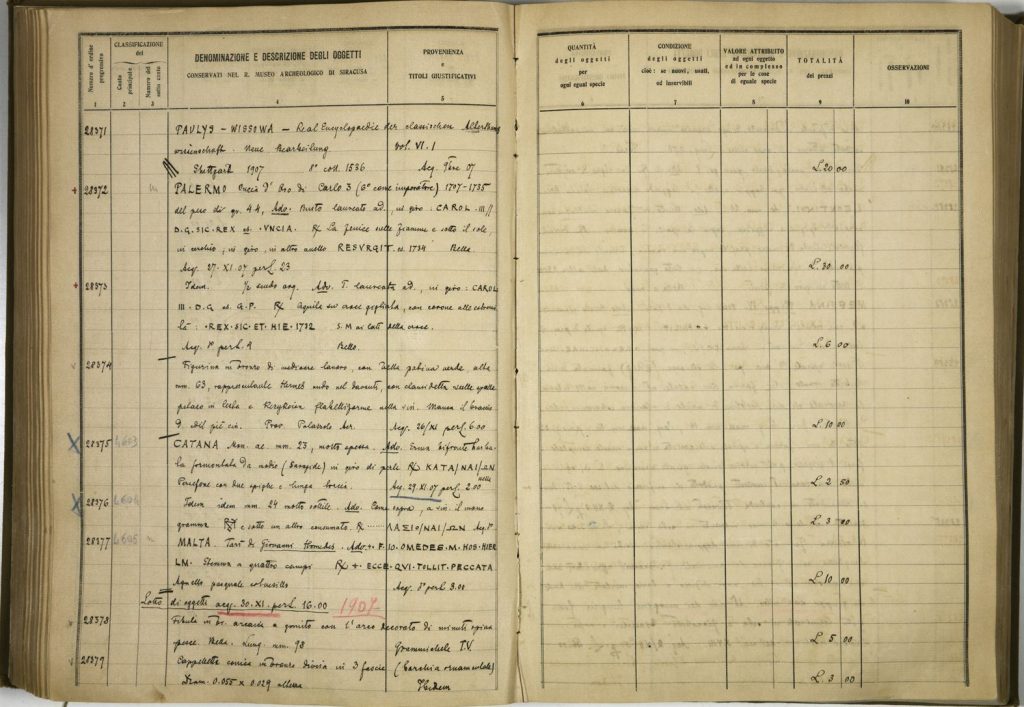 Numero d'ordine progressivo
CLASSIFICAZIONE del
Costo principale
Numero del sotto costo
DENOMINAZIONE E DESCRIZIONE DEGLI OGGETTI
CONSERVATI NEL R. MUSEO ARCHEOLOGICO DI SIRACUSA
PROVENIENZA
e
TITOLI GIUSTIFICATIVI
QUANTITÀ
degli oggetti
per
ogni egual specie
CONDIZIONE
degli oggetti
cioè: se nuovi, usati,
od inservibili
VALORE ATTRIBUITO
ad ogni oggetto
ed in complesso
per le cose
di eguale specie
TOTALITÀ
dei prezzi
OSSERVAZIONI
1 2 3 4 5 6 7 8 9 10
28371 PAULYS - WISSOWA - Real Encyclopaedie der classischen Altertums
wissenschaft. Neue Bearbeitung vol. VI. 1
Stuttgart 1907 8° coll. 1536 Acq. 07 L. 20 00
28372 PALERMO Oncia d'Oro di Carlo 3 (6° come imperatore) 1707-1735
del peso di gr. 4.4, Ado. Busto laureato ad., in giro: CAROL·III
D.G.SIC.REX es. ·VNCIA· R) La fenice sulle fiamme e sotto il sole,
in cerchio; in giro, in altro anello RESVRGIT es. 1734 Bella
Acq. 27·XI·07 per L. 23 L. 30 00
28373 Idem. scudo arg. Ado. T. laureata ad., in giro: CAROL
III·D.G es. G.P. R) Aquila su croce gigliata, con corone alle estremi
tà: ·REX·SIC·ET·HIE·1732 S.M ai lati della croce.
Acq. per L. 9 Bello. L. 6 00
28374 Figurina in bronzo di mediocre lavoro, con bella patina verde, alta
mm. 63, rappresentante Hermes nudo nel davanti, con clamidetta sulle spalle
petaso in testa e Kerykeion nella sin. Manca il braccio
d. Prov. Palazzolo Acr. Acq. 26/XI per L. 6.00 L. 10 00
28375 4603 CATANA Mon. ae. mm. 23, molto spessa. Ado. Erma bifronte barba-
ta sormontata da modio (Serapide) in giro di perle R) KATA/NAI/ΩN
Persefone con due spighe e lunga torcia. Acq. 29.XI.07 per L. 2.00 L. 2 50
28376 4604 Idem idem mm. 24 molto sottile. Ado. Come sopra, a sin. il mono
gramma e sotto un altro consumato. R ΛΑΣΙΟ/ΝΑΙ/ΩΝ L. 3 00
28377 4605 MALTA. Tarì di Giovanni Homedes. Ado. + F·IO·OMEDES·M·HOS·HIER
LM. Stemma a quattro campi R) + ECCE·QVI·TOLLIT·PECCATA
Agnello pasquale Acq. per L. 3.00 L. 10 00
Lotto di oggetti acq. 30·XI· per L. 16.00 1907
28378 Fibula in br. arcaica a gomito con l'arco decorato di minuti spina
pesce. Bella. Lung. mm. 98 Grammichele T.V. L. 5 00
28379 Cappelletto conico in bronzo diviso in 3 fascie
Diam. 0.055 x 0.029 altezza Idem L. 3 00